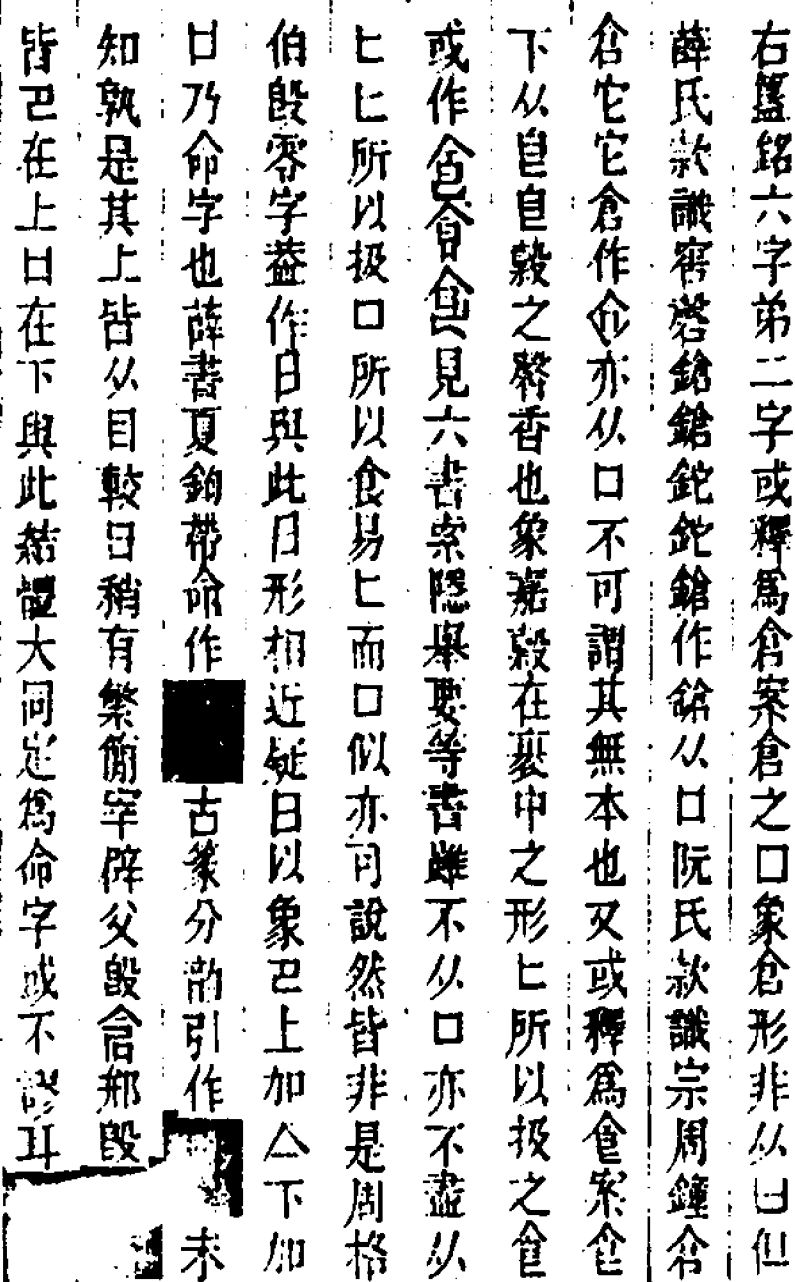 右簋銘六字弟二字或釋爲倉案倉之口象倉形非从曰但
薛氏款識窖磬鎗鎗鉈鉈鎗作鎗从口阮氏款識宗周鐘倉
倉它它倉作亦从口不可謂其無本也又或釋爲食案食
下从皀皀穀之馨香也象嘉穀在裹中之形匕所以扱之食
或作見六書索隱舉要等書雖不从口亦不盡从
匕匕所以扱口所以食易匕而口似亦可說然皆非是周格
伯𣪘零字葢作日與此日形相近疑日以象巴上加亼下加
口乃命字也薛書夏鉤帶命作古篆分韵引作未
知孰是其上皆从目較日稍有繁簡宰辟父𣪘邢𣪘
皆巴在上口在下與此結體大同定爲命字或不謬耳